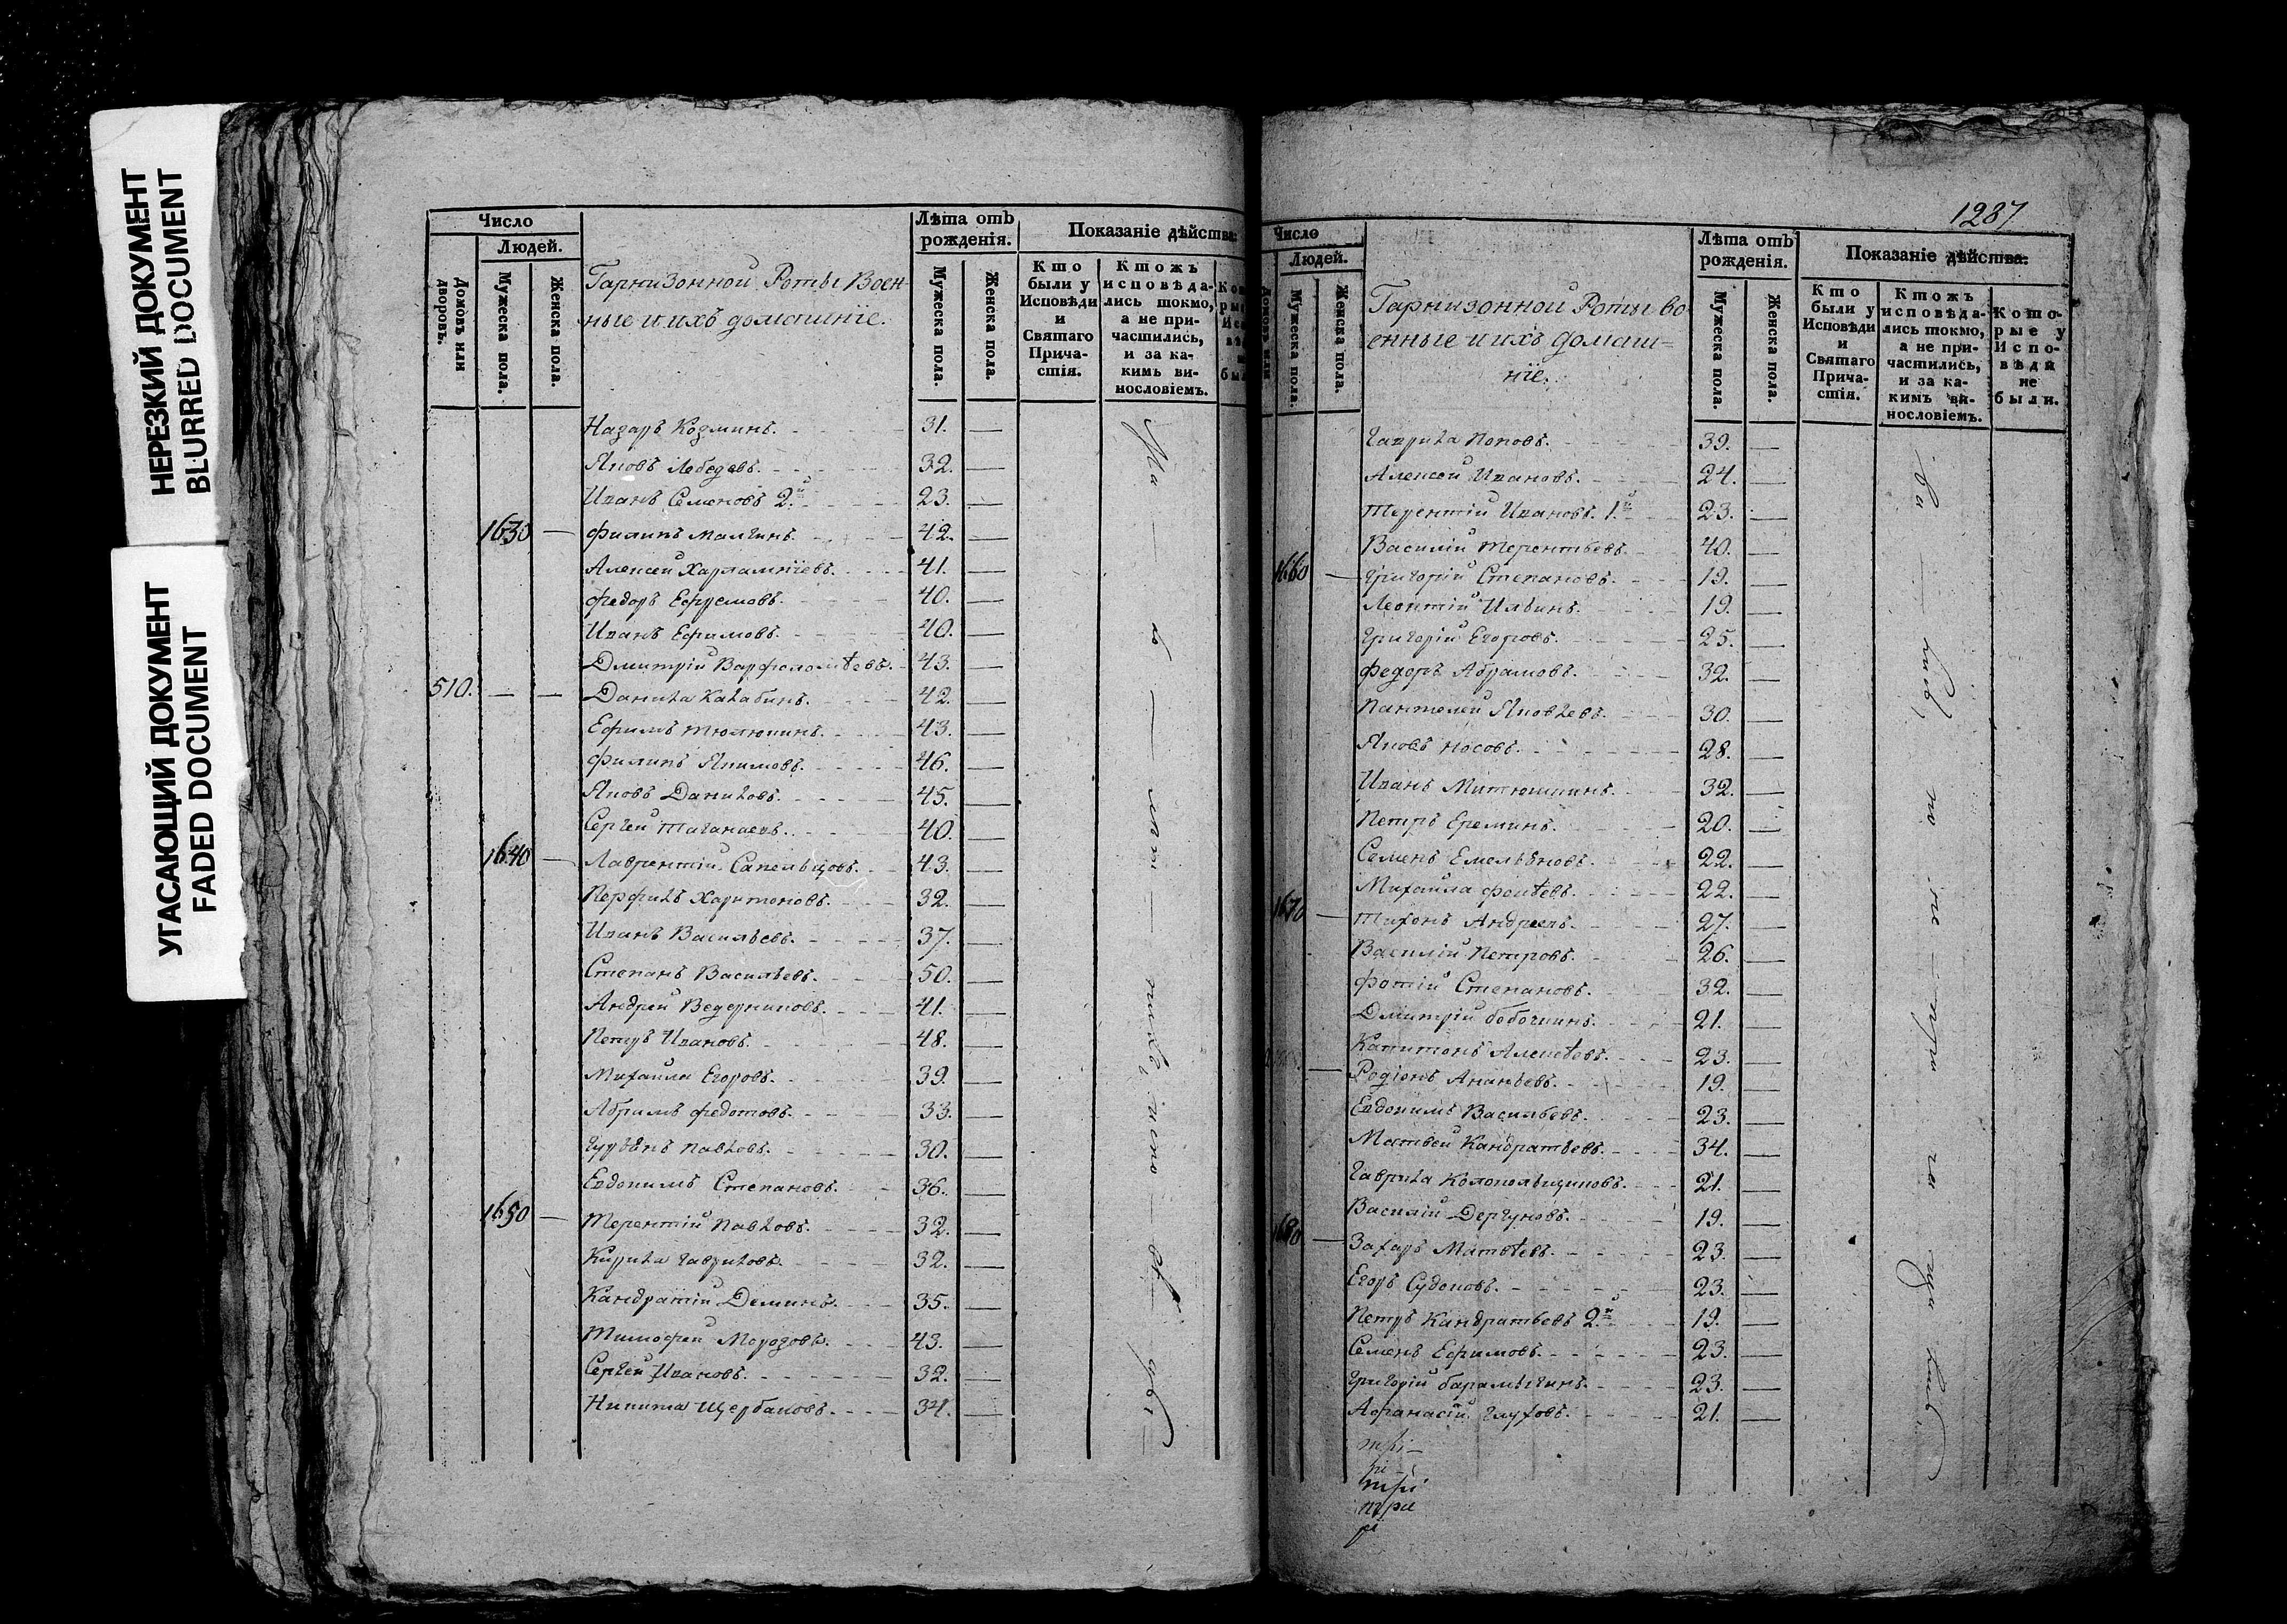 НЕРЕЗКИЙ ДОКУМЕНТ
BLURRED DOCUMENT
УГАСАЮЩИЙ ДОКУМЕНТ
FADED DOCUMENT
Число
Людей.
Домовъ или дворовъ.
Мужеска пола.
Женска пола.
Гарнизонной Роты Воен-
ные и ихъ домашніе.
Лѣта отъ
рожденія.
Мужеска пола.
Женска пола.
Показаніе дѣйства:
Кто
были у
Исповѣди
и
Святаго
Прича-
стія.
Ктожъ
исповѣда-
лись токмо,
а не при-
частились,
и за ка-
кимъ ви-
нословіемъ.
Назаръ Козминъ. 31.
Яковъ Лебедевъ. 32.
Иванъ Семеновъ 2й 23.
1630 Филипъ Малгинъ. 42.
Алексей Харлампіевъ. 41.
Федоръ Ефремовъ. 40.
Иванъ Ефимовъ. 40.
Дмитрій Варфоломѣевъ. 43.
510. Данила Калабинъ. 42.
Ефимъ Тюлюпинъ. 43.
Филипъ Якимовъ. 46.
Яковъ Даниловъ. 45.
Сергей 40.
1640 Лаврентій Сапельцовъ. 43.
Перфилъ Харитоновъ. 32.
Иванъ Васильевъ. 37.
Степанъ Васильевъ. 50.
Андрей Ведерниковъ. 41.
Петръ Ивановъ. 48.
Михайла Егоровъ. 39.
Абрамъ Федотовъ. 33.
Гурьянъ Павловъ. 30.
Евдокимъ Степановъ. 36.
1650 Терентій Павловъ. 32.
Кирила Гавриловъ. 32.
Кандратій Деминъ. 35.
Тимофей Морозовъ. 43.
Сергей Ивановъ. 32.
Никита Щербаковъ. 34.
1287
Число
Людей.
Мужеска пола.
Женска пола.
Гарнизонной Роты во
енные и ихъ домаш=
ніе.
Лѣта отъ
рожденія.
Мужеска пола.
Женска пола.
Показаніе дѣйства:
Кто
были у
Исповѣди
и
Святаго
Прича-
стія.
Ктожъ
исповѣда-
лись токмо,
а не при-
частились,
и за ка-
кимъ ви-
нословіемъ.
Кото-
рые у
Испо-
вѣди
не
были.
Гаврила Поповъ. 39.
Алексей Ивановъ. 24.
Терентій Ивановъ. 1й 23.
Василій Терентьевъ. 40.
1660 Григорій Степановъ. 19.
Леонтій Ильинъ. 19.
Григорій Егоровъ. 25.
Федоръ Абрамовъ. 32.
Пантелей Яковлевъ. 30.
Яковъ Носовъ. 28.
Иванъ Митюшкинъ. 32.
Петръ Ереминъ. 20.
Семенъ Емельяновъ. 22.
Михайла Фокѣевъ. 22.
1670 Тихонъ Андреевъ. 27.
Василій Петровъ. 26.
Фотій Степановъ. 32.
Дмитрій Бобошинъ. 21.
Капитонъ Алексѣевъ. 23.
Родіонъ Ананьевъ. 19.
Евдокимъ Васильевъ. 23.
Матвей Кандратьевъ. 34.
Гаврила Колокольщиковъ. 21.
Василій Дергуновъ. 19.
1680 Захаръ Матвѣевъ. 23.
Егоръ Судоковъ. 23.
Петръ Кандратьевъ 2й 19.
Семенъ Ефимовъ. 23.
Григорій Барамыгинъ. 23.
Афанасій Глуховъ. 21.